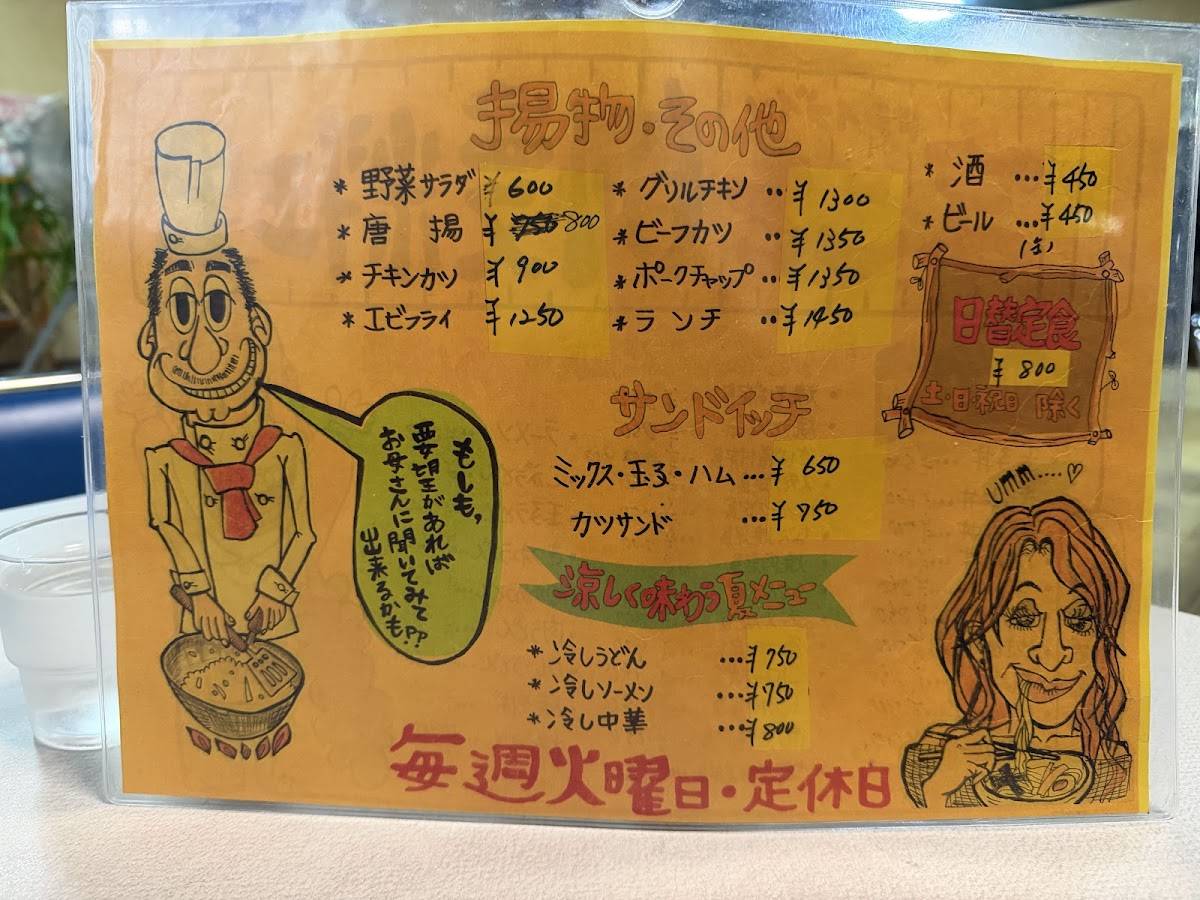 揚物・その他
* 野菜サラダ ¥600
* 唐揚 ¥750 800
* チキンカツ ¥900
* エビフライ ¥1250
* グリルチキン ‥¥1300
* ビーフカツ ‥¥1350
* ポークチャップ ‥¥1350
* ランチ ‥¥1450
* 酒 …¥450
* ビール …¥450
日替定食
¥800
土・日・祝日 除く
サンドイッチ
ミックス・玉子・ハム…¥650
カツサンド …¥750
もしも、
要望があれば
お母さんに聞いてみて
出来るかも!??
涼しく味わう夏メニュー
* 冷しうどん …¥750
* 冷しソーメン …¥750
* 冷し中華 …¥800
umm....♡
毎週火曜日・定休日